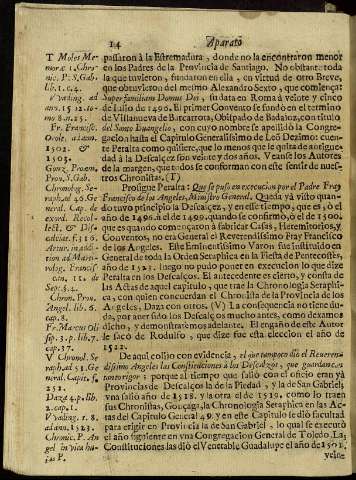 14
Aparato
T Moles Me-
moræ 1. Chro-
nic. P. S. Gab.
lib. 1. c. 4.
Wading. ad
ann. 1512. to-
mo 8. n. 25.
Fr. Francisc.
Orole. ad ann.
1502. &
1503.
Gonz. Proem.
Prov. S. Gab.
Chronolog. Se-
raph. ad 46. Ge-
neral. Cap. de
exord. Recol-
lect. & Dis-
calceat. f. 116.
Artur. in addi-
tion. ad Marti-
rolog. Francis-
can. 11. de
Sept. §. 4.
Chron. Prov.
Angel. lib. 6.
cap. 8.
Fr. Marcus Oli-
sip. 3. p. lib. 7.
cap. 17.
V Chronol. Se-
raph. ad 51. Ge-
neral. Capit. f.
251.
Daza 4. p. lib.
2. cap. 1.
Vvading. t. 8.
ad ann. 1523.
Chronic. P. An-
gel. in vita hu-
ius P.
passaron à la Estremadura, donde no la encontraron menor
en los Padres de la Provincia de Santiago. No obstante toda
la que tuvieron, fundaron en ella, en virtud de otro Breve,
que obtuvieron del mesmo Alexandro Sexto, que comença:
Super familiam Domus Dei, su data en Roma à veinte y cinco
de Iulio de 1496. El primer Convento se fundò en el termino
de Villanueva de Barcarota, Obispado de Badajoz, con titulo
del Santo Evangelio, con cuyo nombre se apellidò la Congre-
gacion hasta el Capitulo Generalissimo de Leon Dezimo: cuen-
te Peralta como quisiere, que lo menos que le quita de antigue-
dad à la Descalçez son veinte y dos años. Veanse los Autores
de la margen, que todos se conforman con este sentir de nues-
tros Chronistas. (T)
Prosigue Peralta: Que se puso en execucion por el Padre Fray
Francisco de los Angeles, Ministro General. Queda yà visto quan-
do tuvo principio la Descalçez, y en este tiempo, que es, ò el
año de 1496. ò el de 1499. quando se confirmò, ò el de 1500.
que es quando començaron à fabricar Casas, Heremitorios, y
Conventos, no era General el Reverendissimo Fray Francisco
de los Angeles. Este Eminentissimo Varon fue instituido en
General de toda la Orden Seraphica en la Fiesta de Pentecostès,
año de 1523. luego no pudo poner en execucion lo que dize
Peralta en los Descalços. El antecedente es cierto, y consta de
las Actas de aquel capitulo, que trae la Chronologia Seraphi-
ca, con quien concuerdan el Chronista de la Provincia de los
Angeles, Daza con otros. (V) La consequencia no tiene du-
da, por aver sido los Descalços mucho antes, como dexamos
dicho, y demonstrarèmos adelante. El engaño de este Autor
le sacò de Rodulfo, que dize fue esta eleccion el año de
1522.
De aqui colijo con evidencia, el que tampoco diò el Reveren-
dissimo Angelis las Constituciones à los Descalços, que guardan con
tanto rigor: porque al tiempo que salió con el oficio eran yà
Provincias de Descalços la de la Piedad, y la de San Gabriel,
vna salió año de 1518. y la otra el de 1519. como lo traen
sus Chronistas, Gonçaga, la Chronologia Seraphica en las Ac-
tas del Capitulo General 49. y en este Capitulo se diò facultad
para erigir en Provincia la de San Gabriel, lo qual se executò
el año siguiente en vna Congregacion General de Toledo. Las
Constituciones las diò el Venerable Guadalupe el año de 1501.
veinte